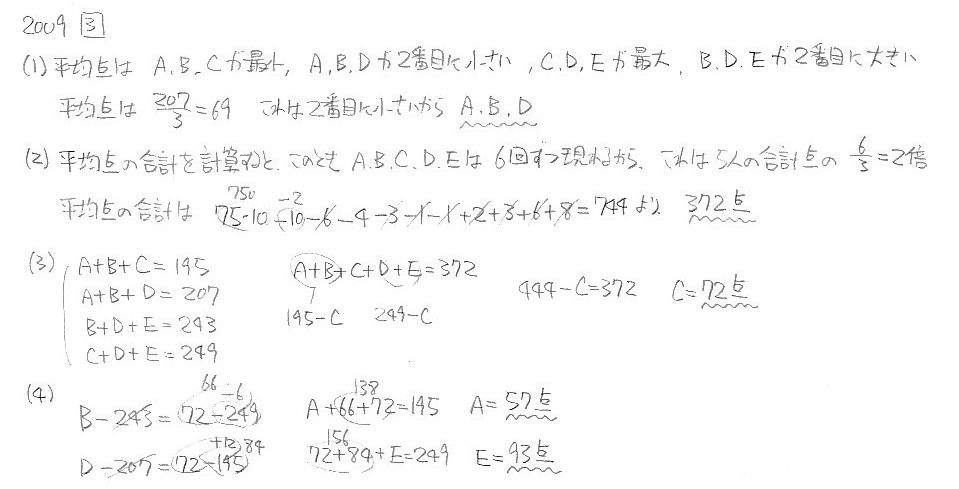 2009 3
(1) 平均点は A.B.Cが最小, A.B.Dが2番目に小さい, C.D.Eが最大, B.D.Eが2番目に大きい
平均点は 207/3=69 これは2番目に小さいから A.B.D
(2) 平均点の合計を計算すると、このとき A.B.C.D.Eは 6回ずつ現れるから、これは5人の合計点の 6/3=2倍
750 -2
平均点の合計は 75・10-10-6-4-3-1-1+2+3+6+8=744 より 372点
(3) A+B+C=195 A+B+C+D+E=372
A+B+D=207 444-C=372 C=72点
B+D+E=243 195-C 249-C
C+D+E=249
(4) 66 -6 138
B-243=72-249 A+66+72=195 A=57点
+12 84 156
D-207=72-195 72+84+E=249 E=93点